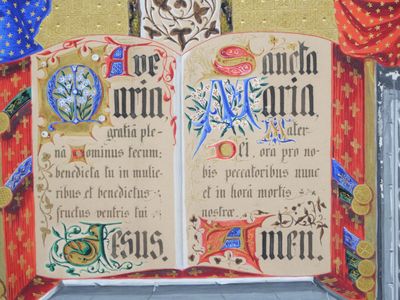 Ave
Maria
gratiâ ple-
nâ Dominus tecum:
benedicta tu in mulie-
ribus et benedictus
fructus ventris tui
Jesus.
Sancta
Maria,
Mater
Dei, ora pro no-
bis peccatoribus nunc
et in horâ mortis
nostræ.
Amen.